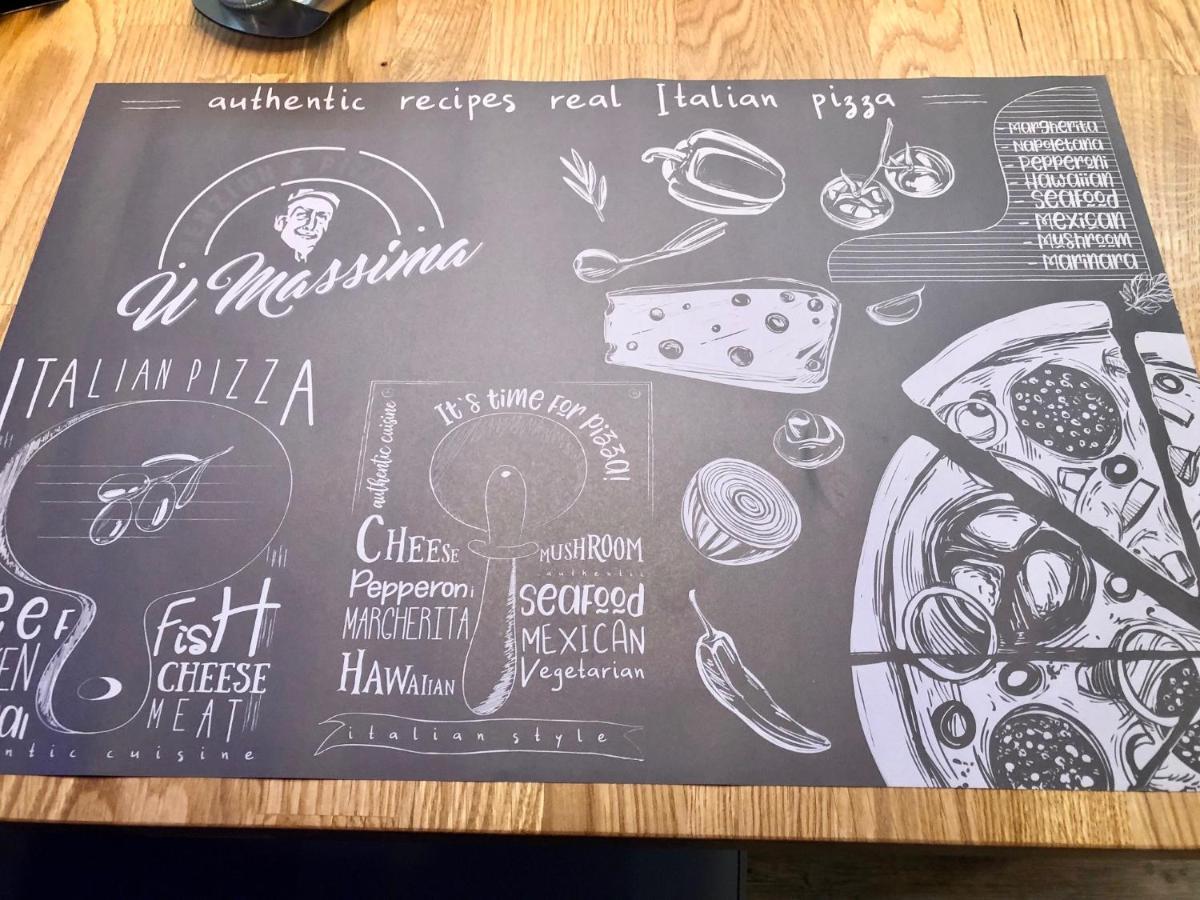 authentic recipes real Italian pizza
- Margherita
- Napoletana
- Pepperoni
- Hawaiian
- Seafood
- Mexican
- Mushroom
- Marinara
U Massima
ITALIAN PIZZA
FisH
CHEESE
MEAT
cuisine
It's time for pizza!
authentic cuisine
CHEESE
Pepperoni
MARGHERITA
HAWAIIAN
MUSHROOM
authentic
SEAFOOD
MEXICAN
Vegetarian
italian style